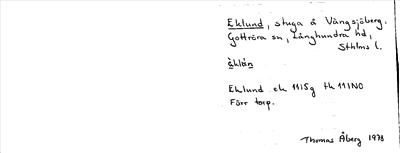 Eklund, stuga å Vängsjöberg.
Gottröra sn, Långhundra hd,
Sthlms l.
àklán
Eklund ek 11I5g tk 11INO
Förr torp.
Thomas Åberg 1978